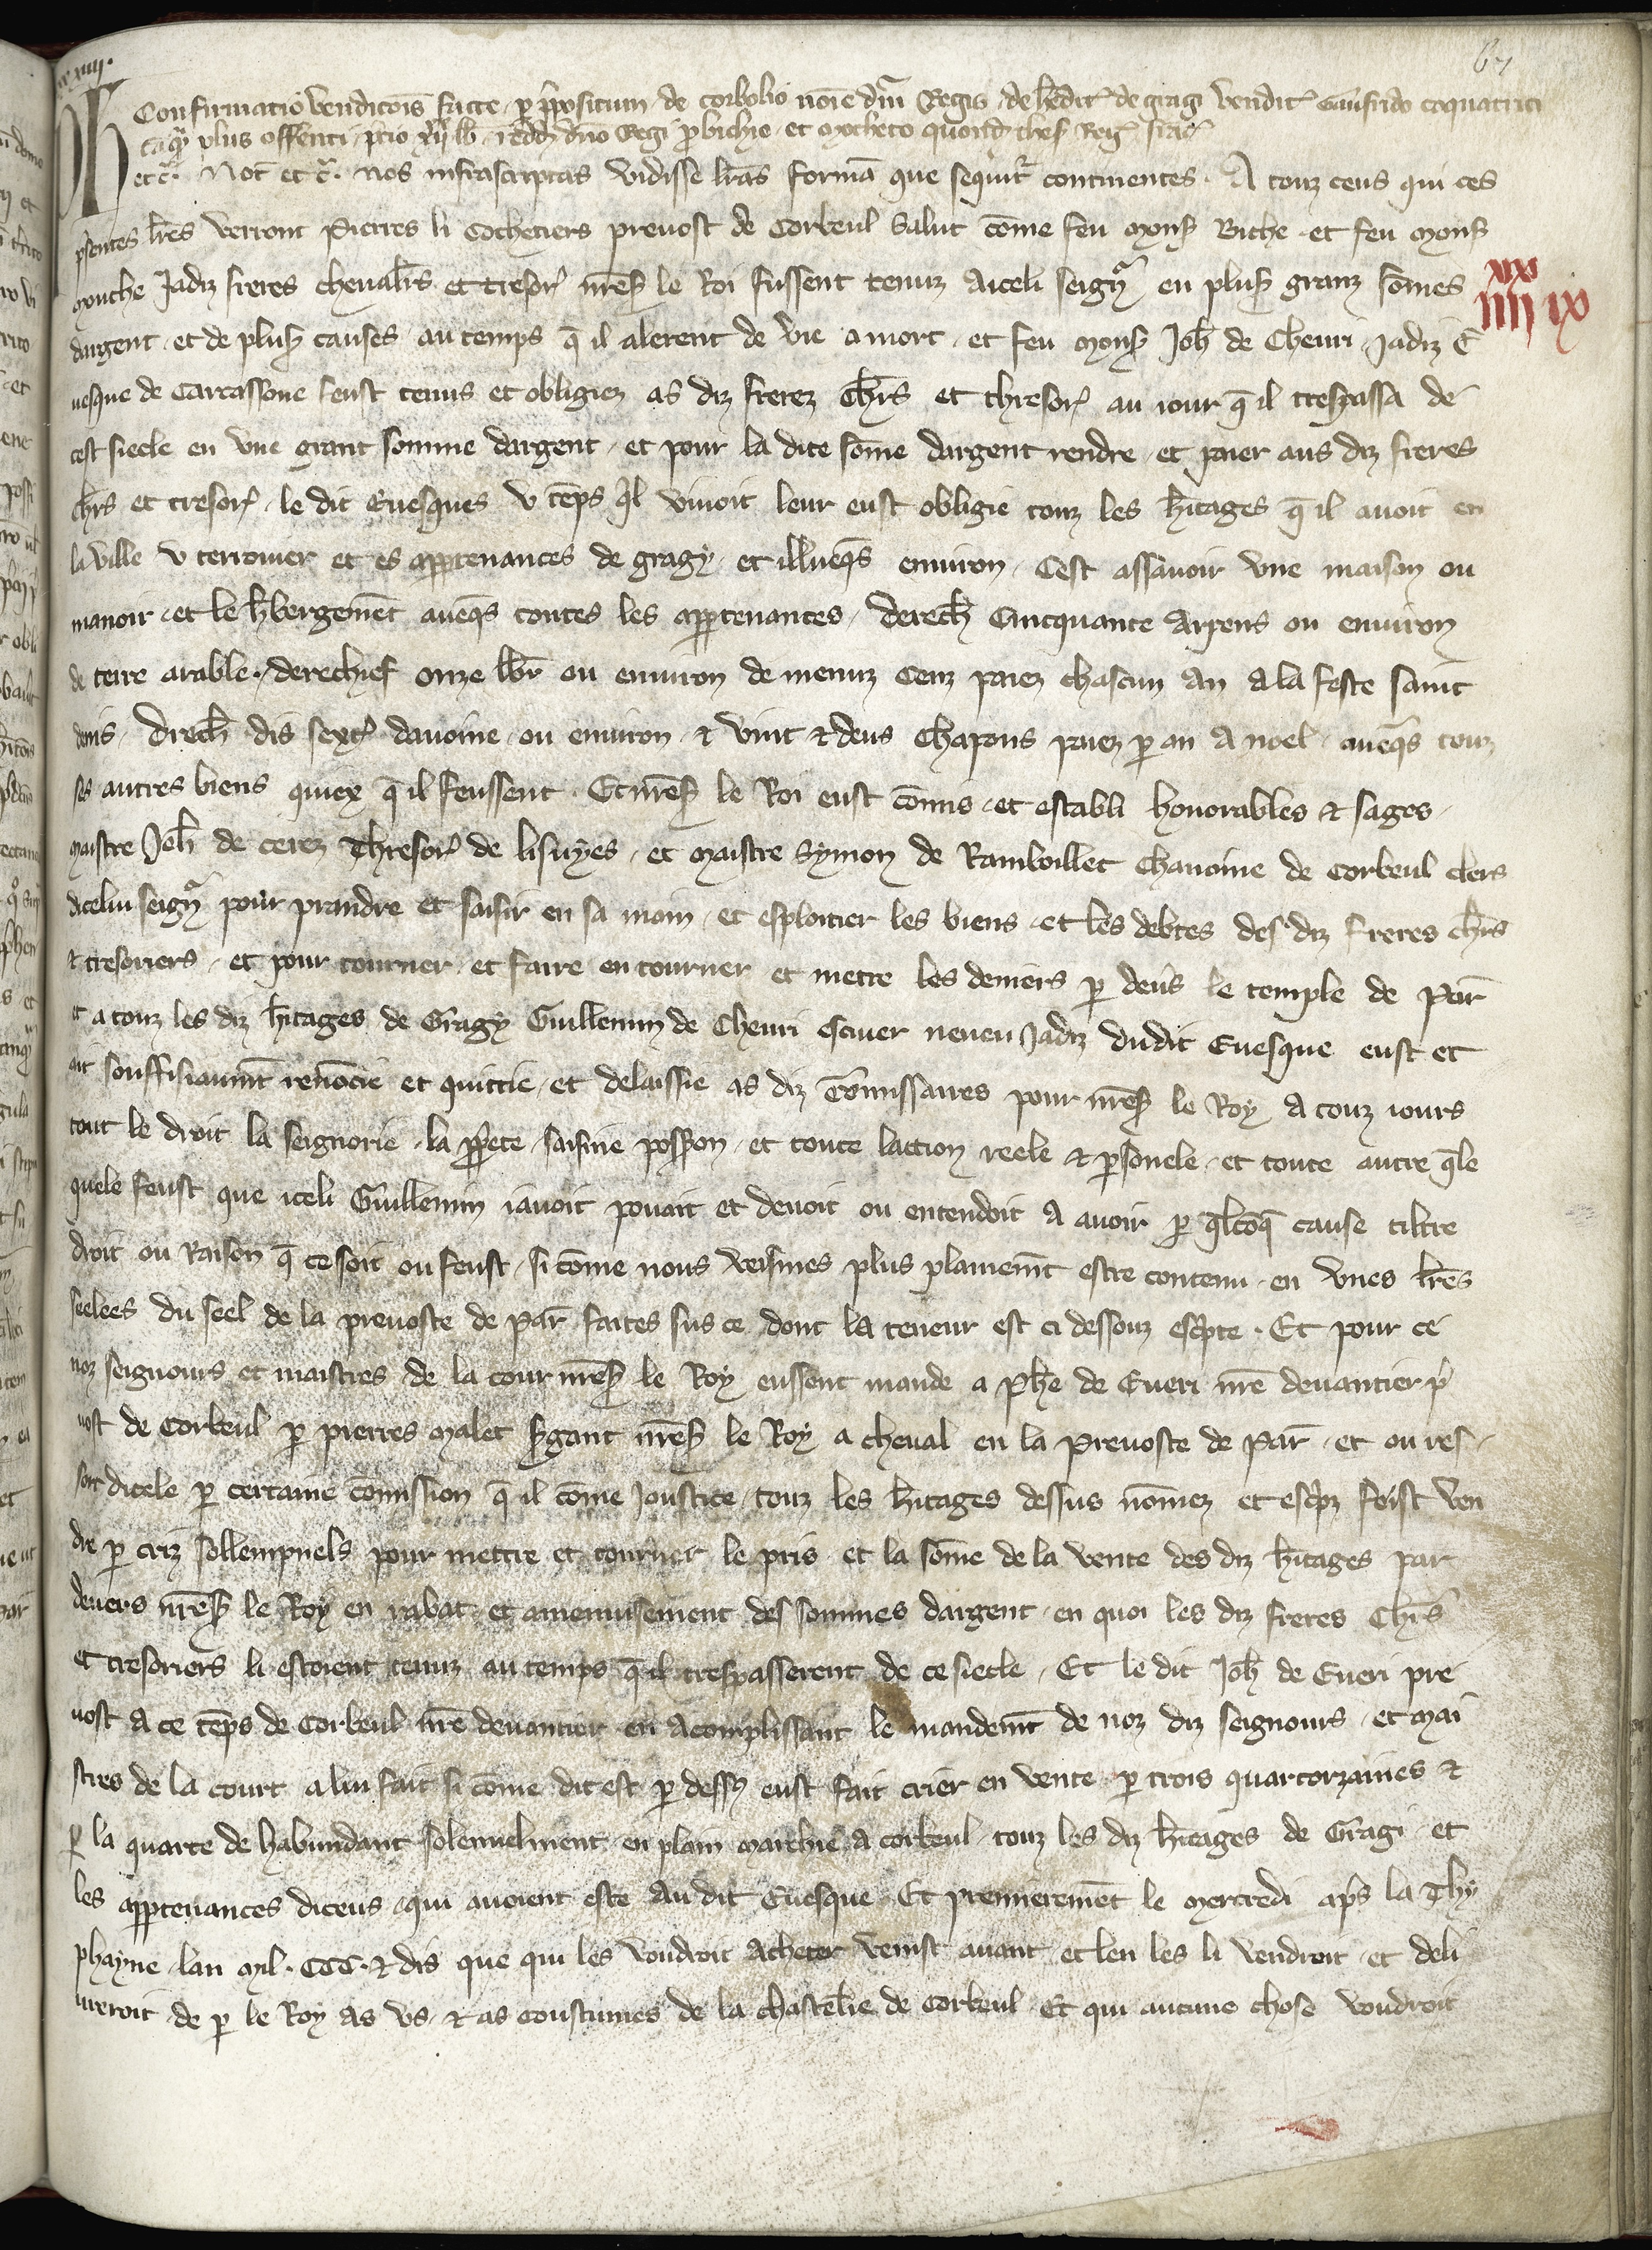 67
xxiiii.
Confirmatio venditiois facte p prpositum de corbolio noie dni Regis de hedit de gragi vendit Guifrido coquatrici
tāqᵃ plus offerenti p̱cio redd dno Regi p bichio et mocheto quond thes Reg
Ph etc̄. Not̄ etc̄. nos infrascriptas vidisse lr̄as formā que sequit̄ continentes. A touz ceus qui ces
p̄sentes lr̄es verront Pierres li Cochetiers prevost de Corbeul Salut cōme feu Mons̄ Biche et feu Mons̄
Mouche Jadiz freres chevalr̄s et tresor̄ nr̄es̄ le Roi fussent tenuz a iceli seigᵃ en plus̄ granz sōmes
xx
iiii ix
dargent et de plus̄ causes au temps q̄ il alerent de vie a mort et feu Mons̄ Joh̄ de Chevri Jadiz E
vesque de Carcassone feust tenus et obligiez as diz frerez Chr̄s et thresor̄ au iour q̄ il trespassa de
cest siecle en une grant somme dargent et pour la dite sōme dargent rendre et paier aus diz freres
chr̄s et tresor̄ le dit Evesques u tēps q̄l vivoit leur eust obligie touz les h̄itages q̄ il avoit en
la ville u terrouer et es app̱tenances de gragy et illueq̄s environ Cest assavoir une maison ou
manoir et le h̄bergemēt aveq̄s toutes les app̱tenances derech̄ Cinquante Arpens ou environ
de terre arable. derechief onze lbr̄ ou environ de menuz Cenz paiez chascun an a la feste saint
denis, direch̄ dis sext̄ davoine ou environ & vint & deus Chapons paiez p̱ an a noel aveq̄s touz
ses autres biens quiex q̄ il feussent. Et nr̄es̄ le Roi eust cōmis et establi honorables & sages
maistre Joh̄ de cerez Thresor̄ de lisuyes, et Maistre Symon de Ramboillet Chanoine de Corbeul clers
dicelui seigᵃ pour prandre et saisir en sa main et esploitier les biens et les debtes des diz freres chr̄s
& tresoriers et pour tourner et faire entourner et metre les deniers p̱ devs le temple de Par̄
et a touz les diz h̄itages de Gragy Guillemin de Chevri escuier neveu Jadiz dudit Evesque eust et
ait souffisiaumt renōcie et quittie et delaissie as diz Cōmissaires pour nr̄es̄ le Roy a touz iours
tout le droit la seignorie la pp̱ete saisine possion et toute laction reele & p̱sonele et toute autre q̄le
quele feust que iceli Guillemin i avoit povait et devoit ou entendoit a avoir p̱ q̄lcōq̄ cause tiltre
droit ou Raison q̄ ce soit ou feust si cōme nous veismes plus plainemt estre contenu en unes lr̄es
seelees du seel de la prevoste de Par̄ faites sus ce dont la teneur est ci dessouz escp̱te. Et pour ce
noz seignours et maistres de la cour nr̄es̄ le Roy eussent mande a Phe de Everi nr̄e devantier p̄
vost de Corbeul p̱ pierres Malet s̄gant nr̄es̄ le Roy a cheval en la Prevoste de Par̄ et ou res
sort dicele p̱ certaine cōmission q̄ il cōme Joustice touz les h̄itages dessus nōmez et escp̱z feist ven
dre p̱ criz sollempnels pour mettre et tourner le pris et la sōme de la vente des diz h̄itages par
devers nr̄es̄ le Roy en rabat et amenuisement des sommes dargent en quoi les diz freres Chr̄s
et tresoriers li estoient tenuz au temps q̄ il trespasserent de ce siecle, Et le dit Joh̄ de Everi pre
vost a ce tēps de Corbeul nr̄e devantier en acomplissant le mandemt de noz diz seignours et Mai
stres de la court a lui fait si cōme dit est p̱ dessꝰ eust fait crier en vente p̱ trois quartorzaines &
p̱ la quarte de habundant solennelment en plain marchie a corbeul touz les diz h̄itages de Gragi et
les app̱tenances diceus qui avoient este Au dit Evesque Et premierement le Mercredi ap̄s la Thy
phayne lan Mil. CCC. & dis que qui les voudroit Acheter venist avant et len les li vendroit et deli
verroit de p̱ le Roy as us & as coustumes de la chastelr̄ie de Corbeul Et qui aucune chose voudroit